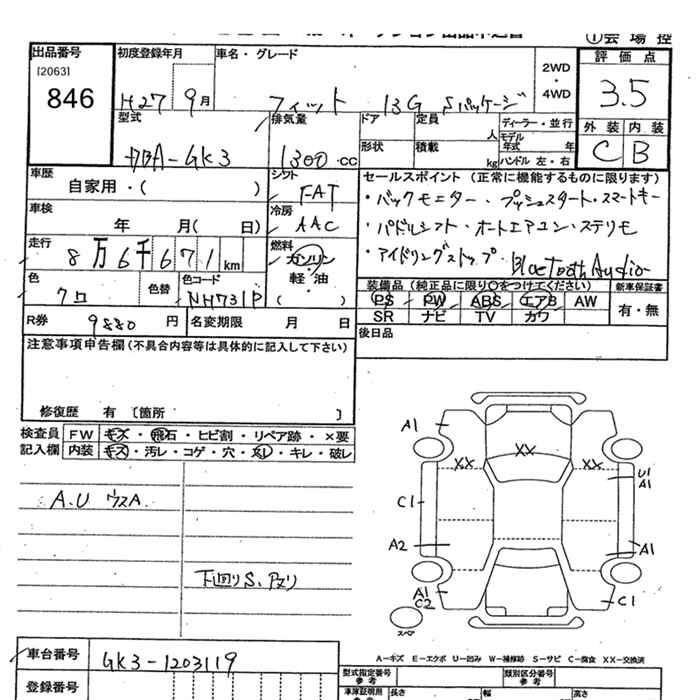 ①会場控
出品番号 初度登録年月 車名・グレード 2WD・4WD 評価点
[2063]
846 H27 9月 フィット 13G Sパッケージ 3.5
型式 排気量 ドア 定員 人 ディーラー・並行 外装 内装
モデル年式 年
DBA-GK3 1300 cc 形状 積載 kg ハンドル 左・右 C B
車歴 シフト セールスポイント (正常に機能するものに限ります)
自家用・( ) FAT ・バックモニター・プッシュスタート・スマートキー
車検 冷房
年 月( 日) AAC ・パドルシフト・オートエアコン・ステリモ
走行 燃料
8万6千671km ガソリン ・アイドリングストップ・Bluetooth Audio
軽・油
色 色替 色コード ( ) 装備品 (純正品に限り○をつけてください) 新車保証書
クロ NH731P PS PW ABS エアB AW 有・無
SR ナビ TV カワ
R券 9880 円 名変期限 月 日 後日品
注意事項申告欄(不具合内容等は具体的に記入して下さい)
修復歴 有 〔箇所 〕
検査員 FW キズ・飛石・ヒビ割・リペア跡・×要
記入欄 内装 キズ・汚レ・コゲ・穴・・キレ・破レ
A1
XX XX XX
U1
A1
C1
A.U
A2 A1
下回りS.
A1
C2 C1
スペア
車台番号 GK3-1203119
A-キズ E-エクボ U-凹み W-補修跡 S-サビ C-腐食 XX-交換済
登録番号 型式指定番号 参考 類別区分番号 参考
車庫証明用 長さ 幅 高さ